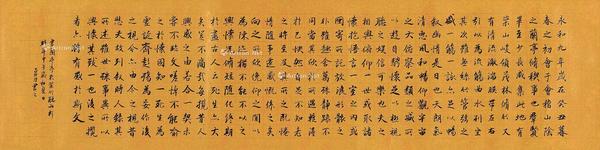 永和九年歲在癸丑暮
春之初會于會稽山陰
之蘭亭脩稧事也羣賢
畢至少長咸集此地有
崇山峻領茂林脩竹又
有清流激湍暎帶左右
引以為流觴曲水列坐
其次雖無絲竹管弦之
盛一觴一詠亦足以暢
敘幽情是日也天朗氣
清惠風和暢仰觀宇宙
之大俯察品類之盛所
以遊目騁懷足以極視
聽之娛信可樂也夫人之
相與俯仰一世或取諸
懷抱悟言一室之內或
因寄所託放浪形骸之
外雖趣舍萬殊靜躁不
同當其欣於所遇蹔得
於己快然自足不知老
之將至及其所之既惓
情隨事遷感慨係之矣
向之所欣俛仰之間以
為陳迹猶不能不以之
興懷況脩短隨化終期
於盡古人云死生亦大
矣豈不痛哉每攬昔人
興感之由若合一契未
嘗不臨文嗟悼不能喻
之於懷固知一死生為
虛誕齊彭殤為妄作後
之視今亦由今之視昔
悲夫故列敘時人錄其
所述雖世殊事異所以
興懷其致一也後之攬
者亦將有感於斯文